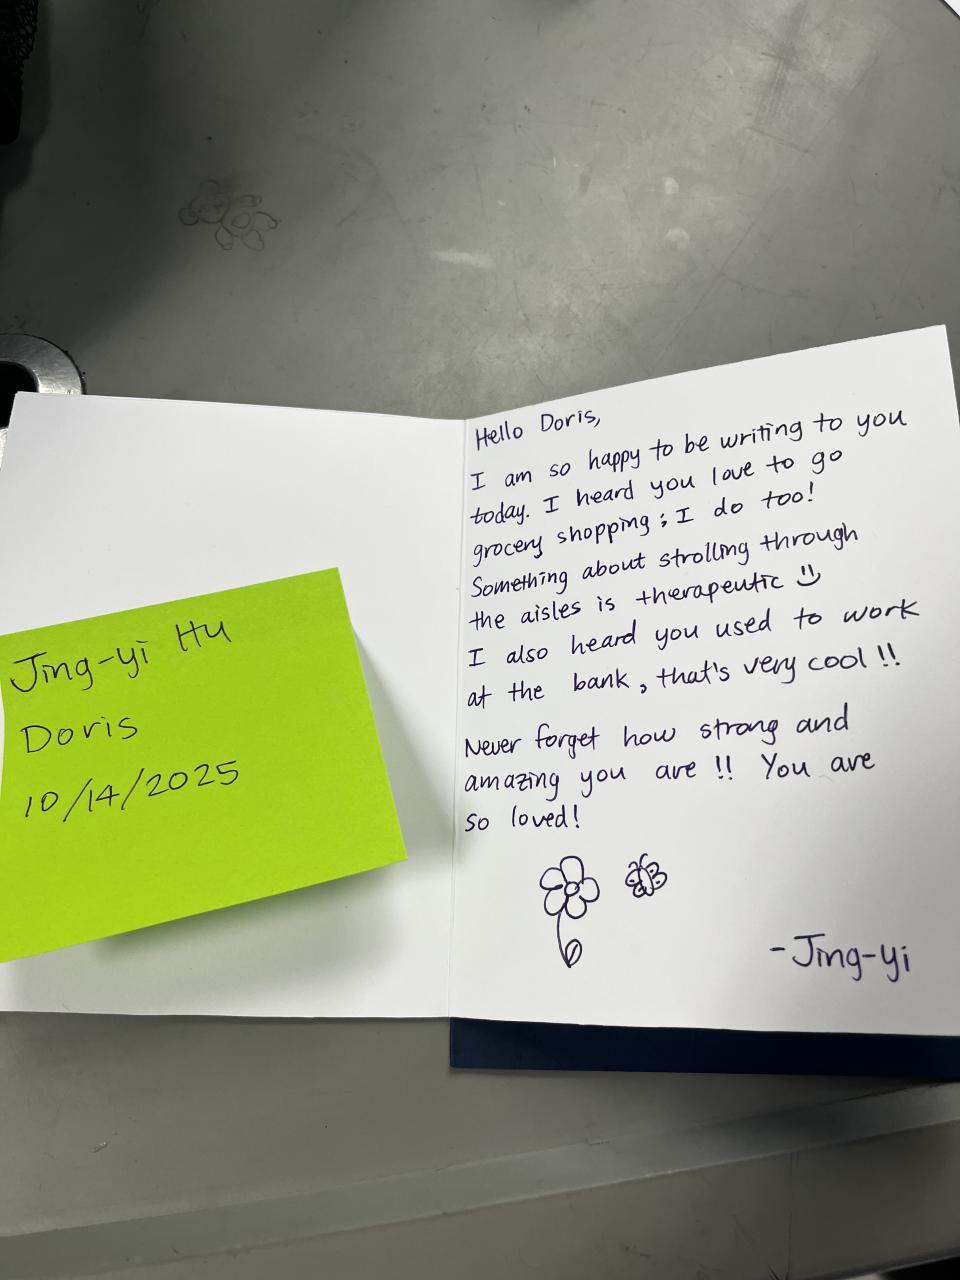 Jing-yi Hu
Doris
10/14/2025
Hello Doris,
I am so happy to be writing to you
today. I heard you love to go
grocery shopping; I do too!
Something about strolling through
the aisles is therapeutic
I also heard you used to work
at the bank, that's very cool!!
Never forget how strong and
amazing you are!! You are
so loved!
-Jing-yi